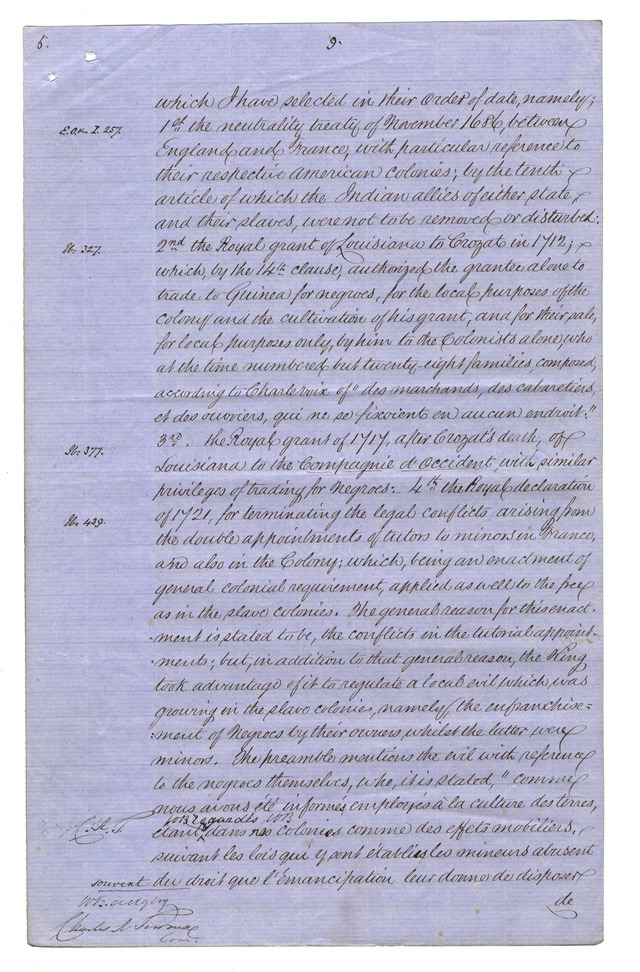 5.
9.
which I have selected in their order of date, namely;
E.O.&c. I. 257.
1st the neutrality treaty of November 1686, between
England and France, with particular reference to
their respective American colonies; by the tenth
article of which the Indian allies of either state,
and their slaves, were not to be removed or disturbed:
Ib. 327.
2nd the Royal grant of Louisiana to Crozat in 1712;
which, by the 14th clause, authorized the grantee alone to
trade to Guinea for negroes, for the local purposes of the
colony and the cultivation of his grant, and for their sale,
for local purposes only, by him to the Colonists alone; who
at the time numbered but twenty eight families, composed,
according to Charlevoix of "des marchands, des cabaretiers,
et des ouvriers, qui ne se fixoient en aucun endroit:"
Ib. 377.
3rd. the Royal grant of 1717, after Crozat's death, of
Louisiana to the Compagnie d'Occident, with similar
privileges of trading for Negroes:
Ib. 439.
4th the Royal declaration
of 1721, for terminating the legal conflicts arising from
the double appointments of tutors to minors in France,
and also in the Colony; which, being an enactment of
general colonial requirement, applied as well to the free
as in the slave colonies. The general reason for this enact-
ment is stated to be, the conflicts in the tutorial appoint-
ments; but, in addition to that general reason, the King
took advantage of it to regulate a local evil which was
growing in the slave colonies, namely, the enfranchise-
ment of Negroes by their owners, whilst the latter were
minors. The preamble mentions the evil with reference
to the negroes themselves, who, it is stated, "comme
nous avons été informés employés à la culture des terres,
WB regardés WB
étant dans nos colonies comme des effets mobiliers,
suivant les lois qui y sont établies les mineurs abusent
souvent
du droit que l'émancipation leur donne de disposer
de